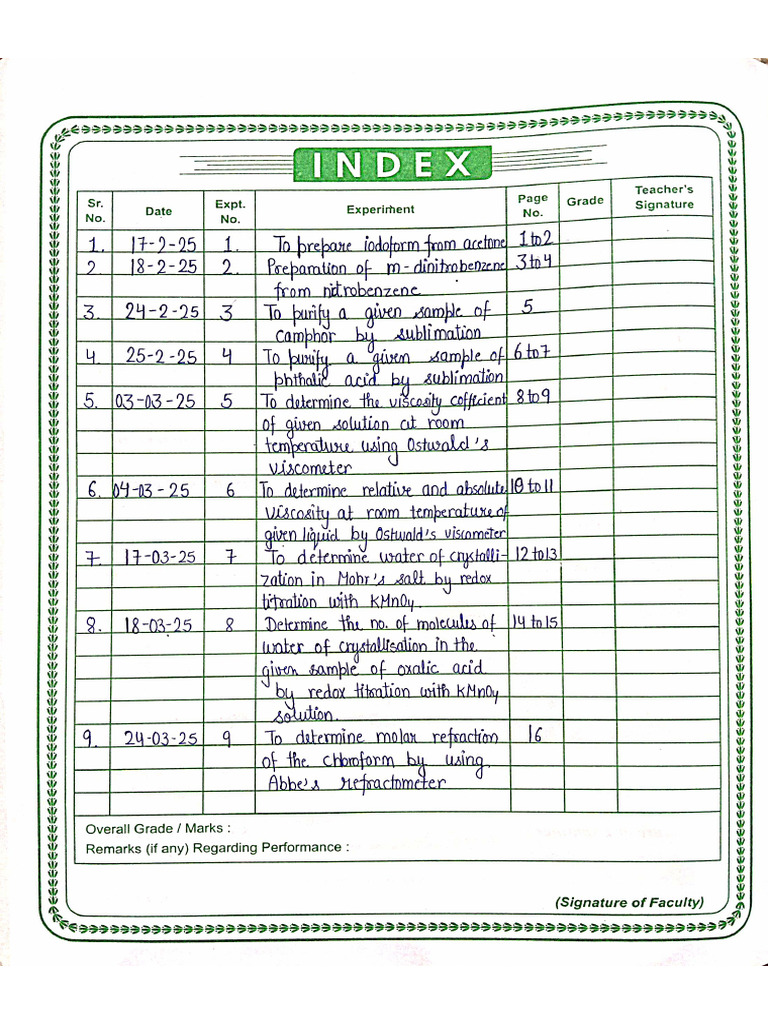 INDEX
Sr. No. Date Expt. No. Experiment Page No. Grade Teacher's Signature
1. 17-2-25 1. To prepare iodoform from acetone 1 to 2
2. 18-2-25 2. Preparation of m-dinitrobenzene 3 to 4
from nitrobenzene
3. 24-2-25 3 To purify a given sample of 5
camphor by sublimation
4. 25-2-25 4 To purify a given sample of 6 to 7
phthalic acid by sublimation
5. 03-03-25 5 To determine the viscosity cofficient 8 to 9
of given solution at room
temperature using Ostwald's
viscometer
6. 04-03-25 6 To determine relative and absolute 10 to 11
viscosity at room temperature of
given liquid by Ostwald's viscometer
7. 17-03-25 7 To determine water of crystalli- 12 to 13
zation in Mohr's salt by redox
titration with KMnO4.
8. 18-03-25 8 Determine the no. of molecules of 14 to 15
water of crystallisation in the
given sample of oxalic acid
by redox titration with KMnO4
solution.
9. 24-03-25 9 To determine molar refraction 16
of the chloroform by using
Abbe's refractometer
Overall Grade / Marks :
Remarks (if any) Regarding Performance :
(Signature of Faculty)